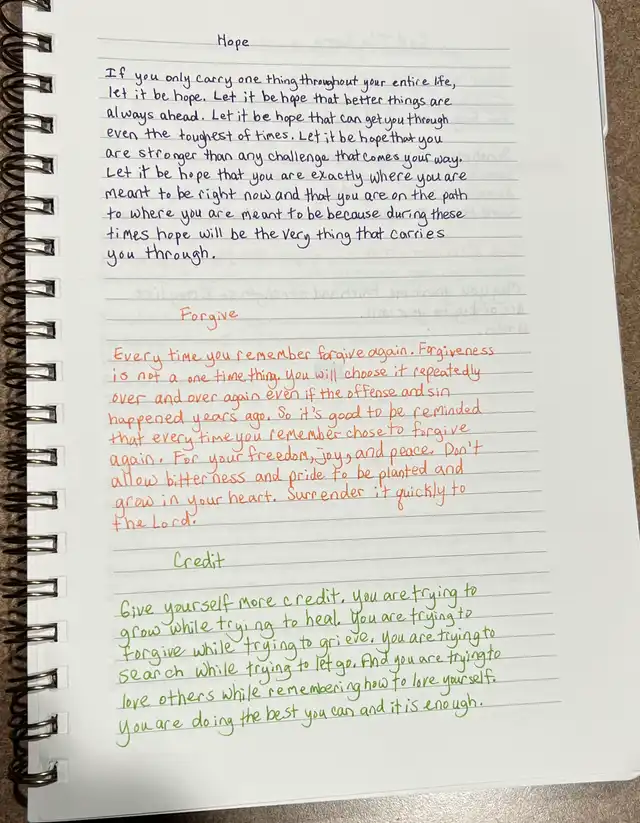 Hope
If you only carry one thing throughout your entire life,
let it be hope. Let it be hope that better things are
always ahead. Let it be hope that can get you through
even the toughest of times. Let it be hope that you
are stronger than any challenge that comes your way.
Let it be hope that you are exactly where you are
meant to be right now and that you are on the path
to where you are meant to be because during these
times hope will be the very thing that carries
you through.
Forgive
Every time you remember forgive again. Forgiveness
is not a one time thing. You will choose it repeatedly
over and over again even if the offense and sin
happened years ago. So it's good to be reminded
that every time you remember chose to forgive
again. For your freedom, joy, and peace. Don't
allow bitterness and pride to be planted and
grow in your heart. Surrender it quickly to
the Lord.
Credit
Give yourself more credit. You are trying to
grow while trying to heal. You are trying to
forgive while trying to grieve. You are trying to
search while trying to let go. And you are trying to
love others while remembering how to love yourself.
You are doing the best you can and it is enough.